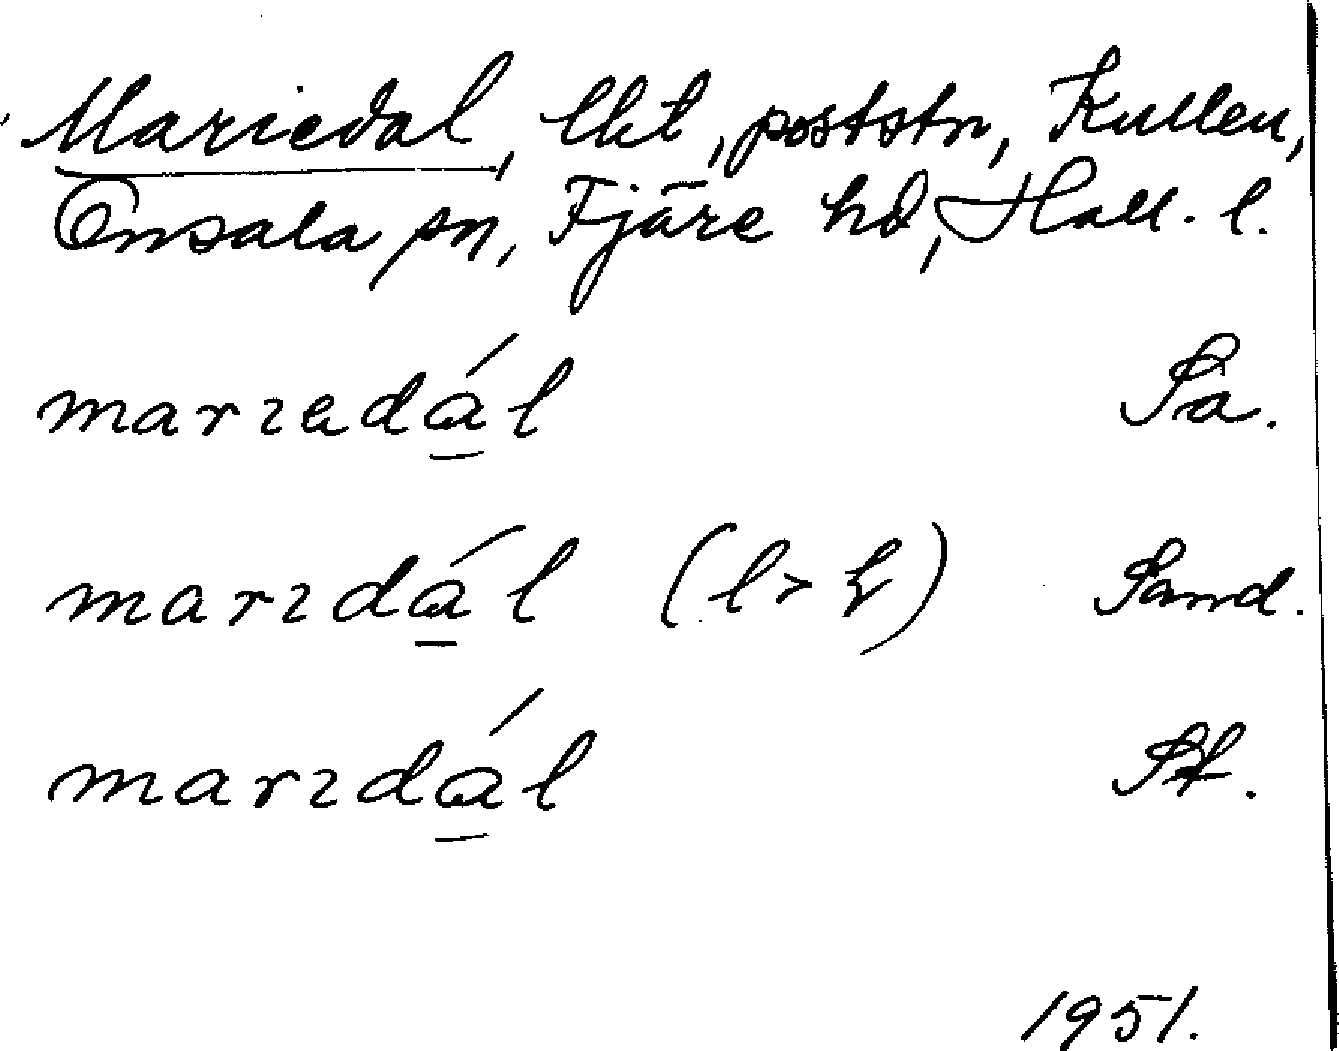 Mariedal, lht, poststn, Kullen,
Onsala sn, Fjäre hd, Hall. l.
marıedál Sa.
marıdál (l > ɫ) Sand.
marıdál St.
1951.